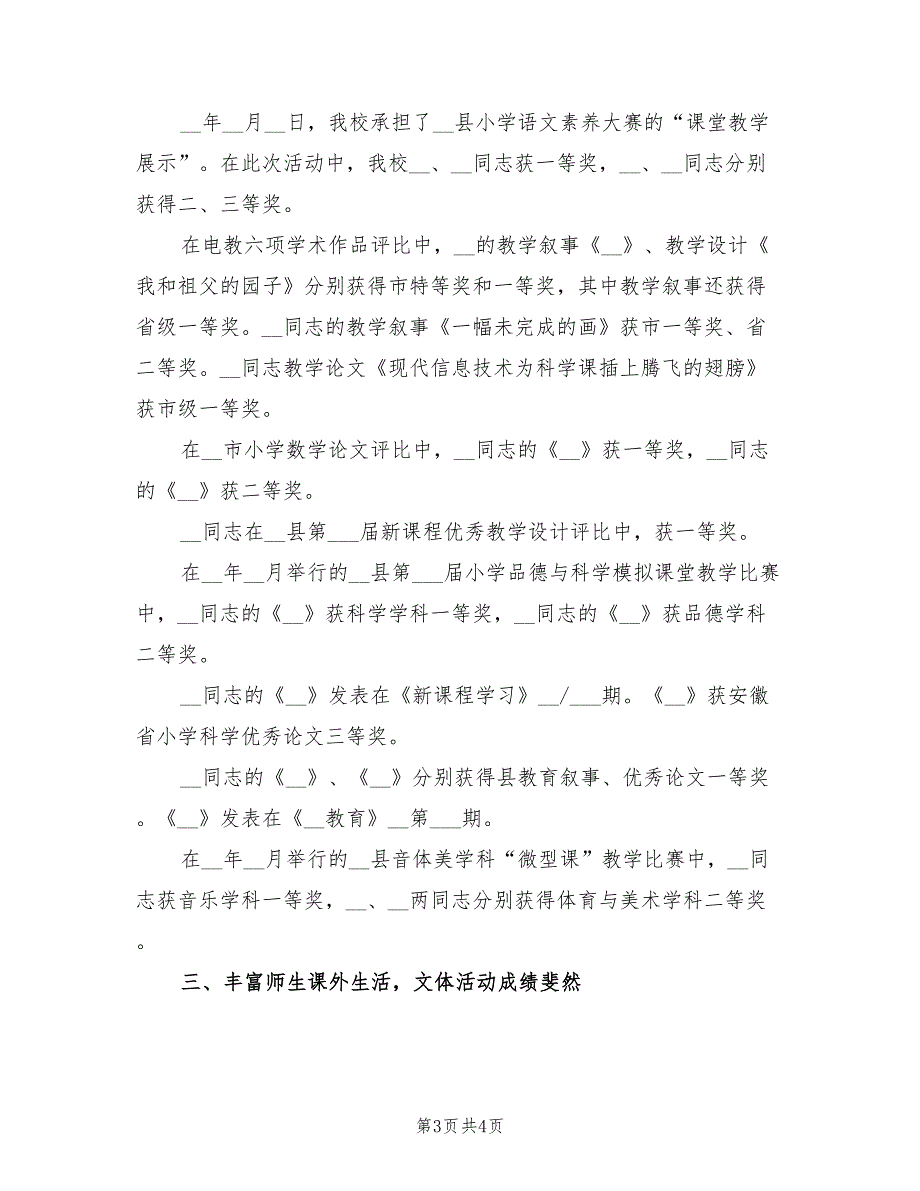 __年__月__日，我校承担了__县小学语文素养大赛的“课堂教学
展示”。在此次活动中，我校__、__同志获一等奖，__、__同志分别
获得二、三等奖。
在电教六项学术作品评比中，__的教学叙事《__》、教学设计《
我和祖父的园子》分别获得市特等奖和一等奖，其中教学叙事还获得
省级一等奖。__同志的教学叙事《一幅未完成的画》获市一等奖、省
二等奖。__同志教学论文《现代信息技术为科学课插上腾飞的翅膀》
获市级一等奖。
在__市小学数学论文评比中，__同志的《__》获一等奖，__同志
的《__》获二等奖。
__同志在__县第___届新课程优秀教学设计评比中，获一等奖。
在__年__月举行的__县第___届小学品德与科学模拟课堂教学比赛
中，__同志的《__》获科学学科一等奖，__同志的《__》获品德学科
二等奖。
__同志的《__》发表在《新课程学习》__/___期。《__》获安徽
省小学科学优秀论文三等奖。
__同志的《__》、《__》分别获得县教育叙事、优秀论文一等奖
。《__》发表在《__教育》__第___期。
在__年__月举行的__县音体美学科“微型课”教学比赛中，__同
志获音乐学科一等奖，__、__两同志分别获得体育与美术学科二等奖
。
三、丰富师生课外生活，文体活动成绩斐然
第3页共4页